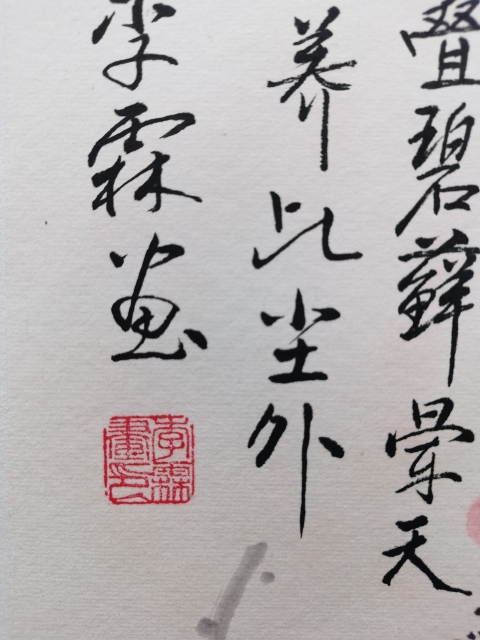 叠碧蘚晕天
养此尘外
李霖画
李霖畫印